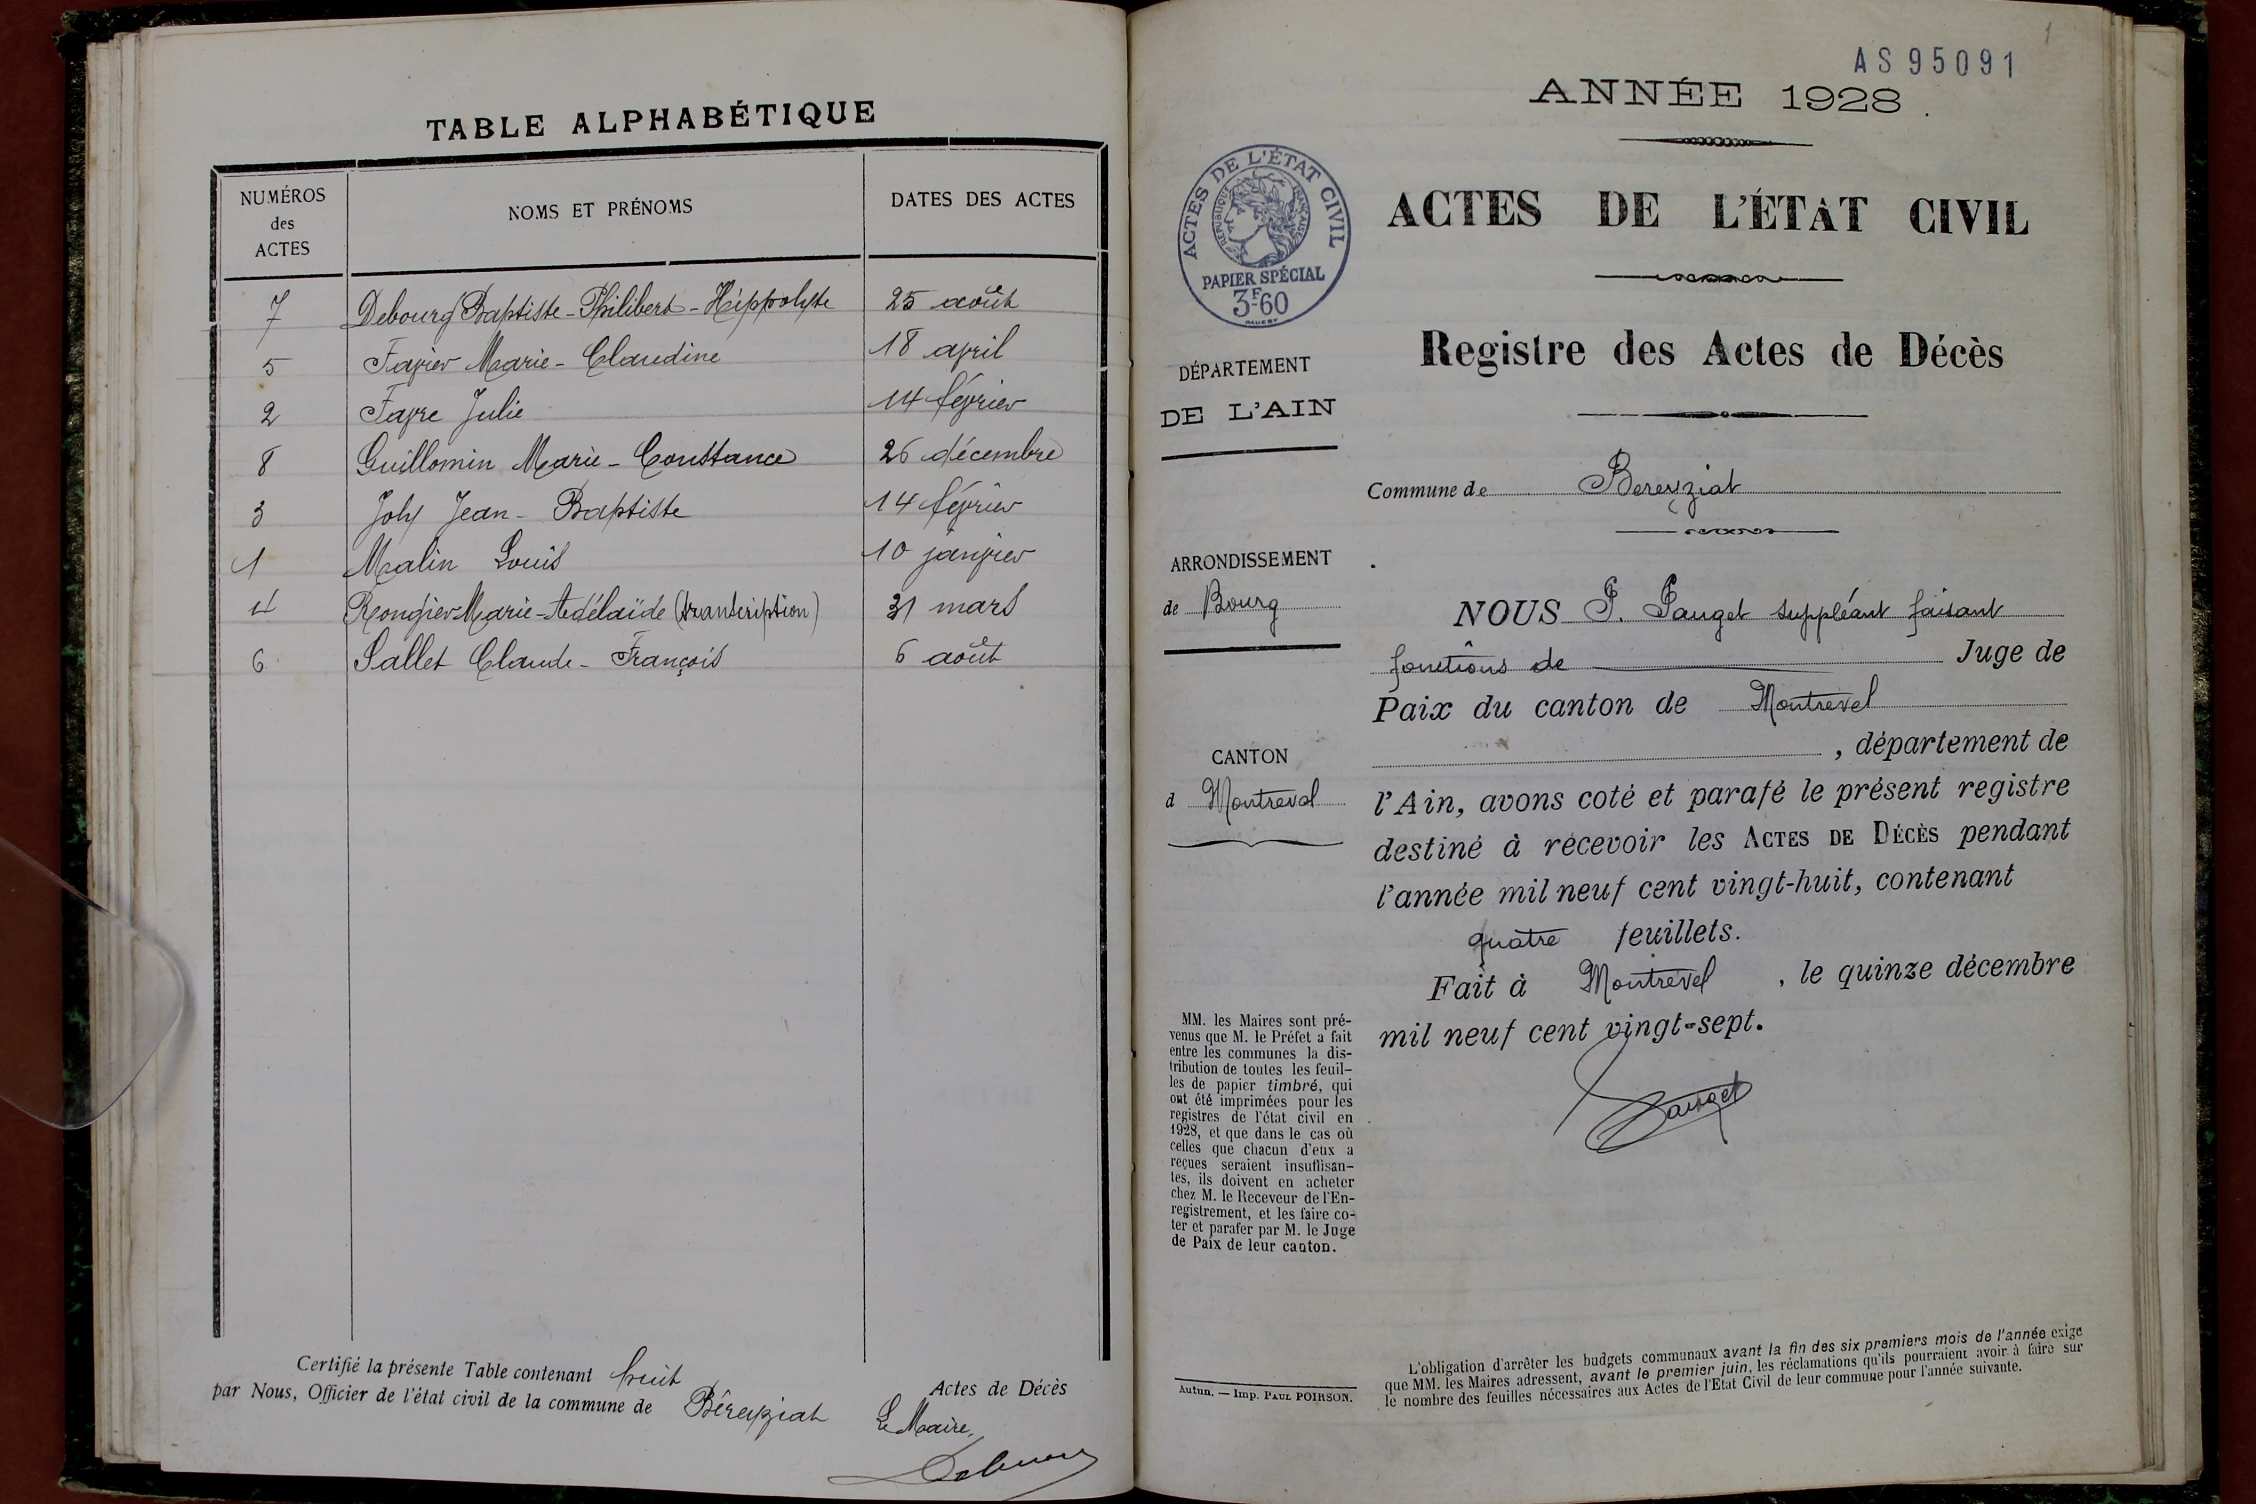 TABLE ALPHABÉTIQUE
NUMÉROS
des
ACTES
NOMS ET PRÉNOMS
DATES DES ACTES
7 Debourg Baptiste-Philibert-Hippolyte 25 août
5 Favier Marie-Claudine 18 avril
2 Favre Julie 14 février
8 Guillomin Marie-Constance 26 décembre
3 Joly Jean-Baptiste 14 février
1 Malin Louis 10 janvier
4 Rongier Marie-Adélaïde (transcription) 31 mars
6 Sallet Claude-François 6 août
Certifié la présente Table contenant huit Actes de Décès
par Nous, Officier de l'état civil de la commune de Béreyziat
Le Maire,
1
AS95091
ANNÉE 1928.
ACTES DE L'ÉTAT CIVIL
RÉPUBLIQUE FRANÇAISE
PAPIER SPÉCIAL
3F60
ACTES DE L'ÉTAT CIVIL
Registre des Actes de Décès
DÉPARTEMENT
DE L'AIN
Commune de Bereyziat
ARRONDISSEMENT
de Bourg
CANTON
d Montrevel
NOUS P. Pauget suppléant faisant
fonctions de Juge de
Paix du canton de Montrevel
, département de
l'Ain, avons coté et parafé le présent registre
destiné à recevoir les ACTES DE DÉCÈS pendant
l'année mil neuf cent vingt-huit, contenant
quatre feuillets.
Fait à Montrevel, le quinze décembre
mil neuf cent vingt-sept.
Pauget
MM. les Maires sont pré-
venus que M. le Préfet a fait
entre les communes la dis-
tribution de toutes les feuil-
les de papier timbré, qui
ont été imprimées pour les
registres de l'état civil en
1928, et que dans le cas où
celles que chacun d'eux a
reçues seraient insuffisan-
tes, ils doivent en acheter
chez M. le Receveur de l'En-
registrement, et les faire co-
ter et parafer par M. le Juge
de Paix de leur canton.
Autun. — Imp. PAUL POIRSON.
L'obligation d'arrêter les budgets communaux avant la fin des six premiers mois de l'année exige
que MM. les Maires adressent, avant le premier juin, les réclamations qu'ils pourraient avoir à faire sur
le nombre des feuilles nécessaires aux Actes de l'Etat Civil de leur commune pour l'année suivante.